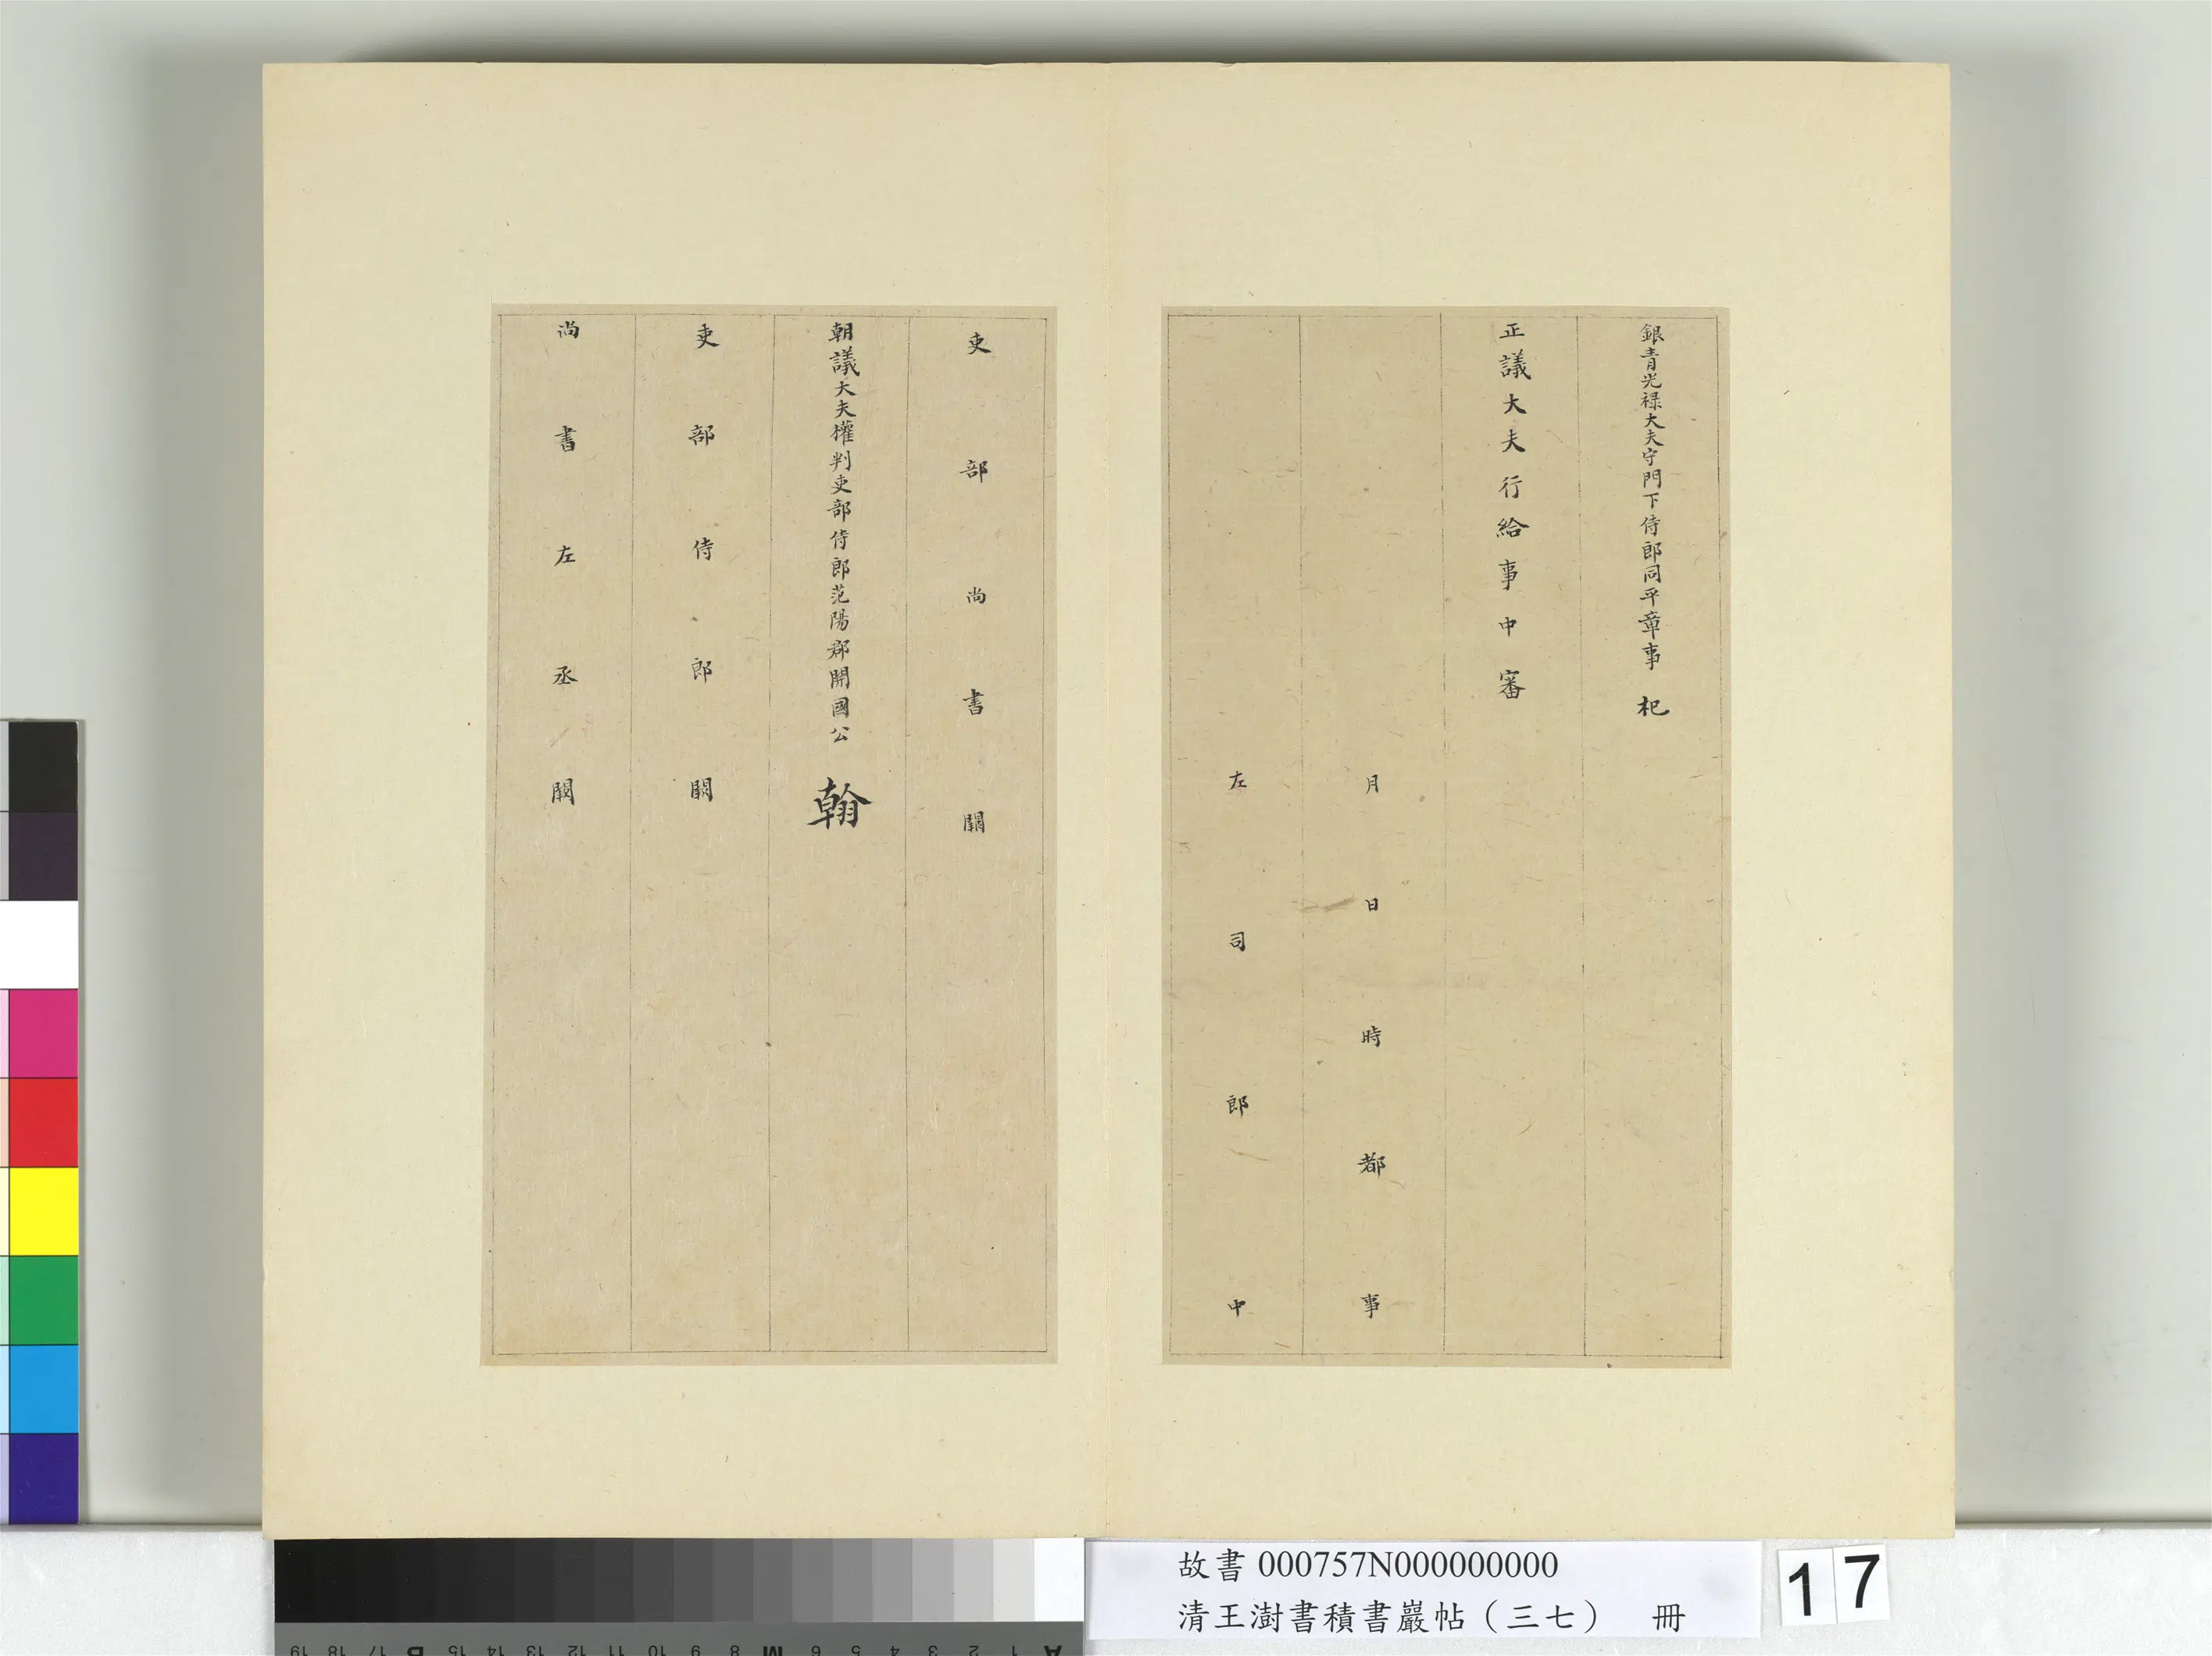 銀青光祿大夫守門下侍郎同平章事 杞
正議大夫行給事中審
月日時都事
左司郎中
吏部尚書闕
朝議大夫權判吏部侍郎范陽郡開國公 翰
吏部侍郎闕
尚書左丞闕
故書 000757N000000000
清王澍書積書巖帖（三七） 冊
17
19 18 17 B 15 14 13 12 11 10 9 8 M 6 5 4 3 2 1 A